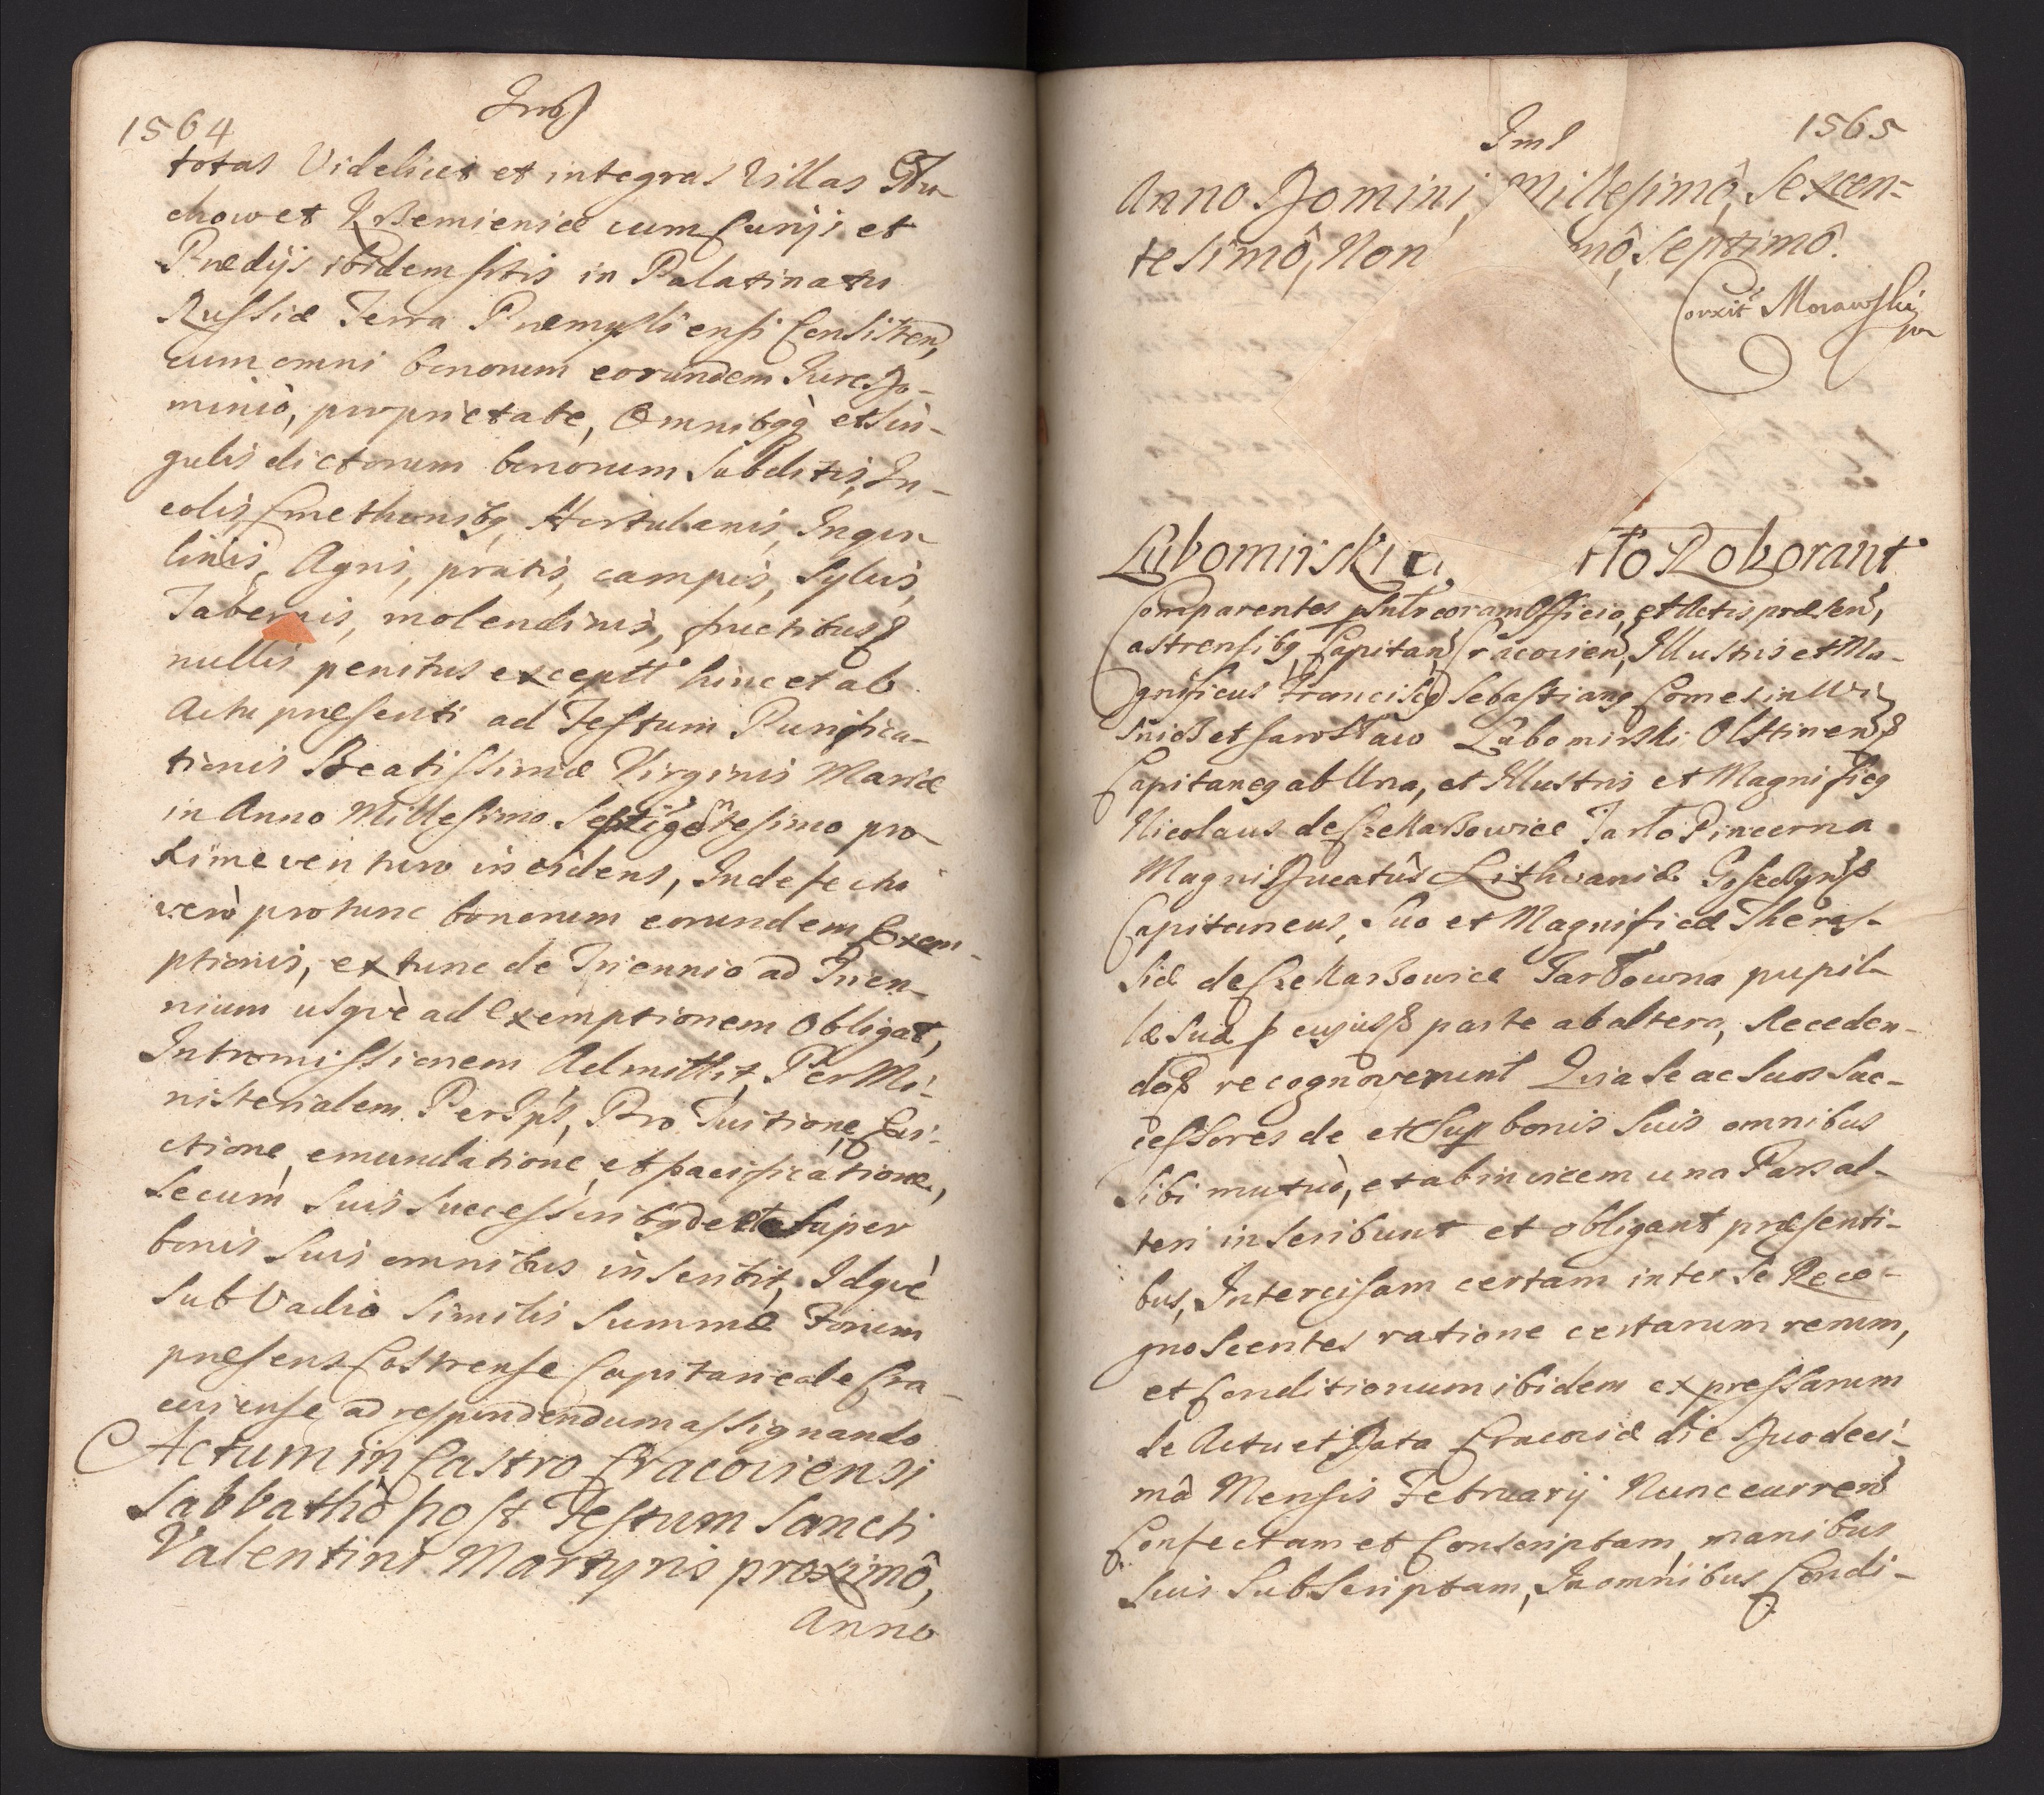 1564
totas Videlicet et integras Villas Tu-
chow et Krzemienica cum Curijs et
Prædijs ibidem sitis in Palatinatu
Russiæ Terra Præmysliensi Consisten,
cum omni bonorum eorundem Jure Do-
minio, proprietate, Omnibqq et sin-
gulis dictorum bonorum Subditis, In-
colis, Cmethonibq, Hortulanis, Inqui-
linis, Agris, pratis, campis, Sylvis,
Tabernis, molendinis, fructibus
nullis penitus exceptt hinc et ab
Actu præsenti ad Festum Purifica-
tionis Beatissimæ Virginis Mariæ
in Anno Millesimo Septigentesimo pro-
xime venturo incidens, Indefectu
verò pro tunc bonorum eorundem Exem-
ptionis, ex tunc de Triennio ad Trien-
nium usquè ad exemptionem Obligat,
Intromissionem Admittit, Per Mi-
nisterialem Per Ips, Pro Tuitione, Evi-
ctione, emundatione, et pacificatione,
Secum Suis Successoribq de et Super
bonis Suis omnibus inscribit, Idquè
Sub Vadio Similis Summæ Forum
præsens Castrense Capitaneale Cra-
coviense ad respondendum assignando
Actum in Castro Cracoviensi
Sabbathò post Festum Sancti
Valentini Martyris proximô,
Anno
1565
Anno Domini, Millesimô, Sexcen-
tesimô, Non mô, Septimô.
Corrxit Morawski
Lubomirski rło Roborant
Comparentes coram Officio, et Actis præsen,
Castrensibq, Capitan, Cracovien, Illustris et Ma-
gnificus Franciscq Sebastianq Comes in Wi-
snicz et Jarosław Lubomirski Olsztinen
Capitaneq ab Una, et Illustris et Magnificq
Nicolaus de Czekarzowice Tarło Pincerna
Magni Ducatûs Lithvaniæ
Capitaneus, Suo et Magnificæ There-
siæ de Czekarzowice Tarłowna pupil-
læ Suæ cujus parte ab altera, Receden-
do recognoverunt Quia Se ac Suos Suc-
cessores de et Sup bonis Suis omnibus
Sibi mutuò, et ab invicem una Pars al-
teri inscribunt et obligant præsenti-
bus, Intercisam certam inter Se Reco-
gnoscentes ratione certarum rerum,
et Conditionum ibidem expressarum
de Actu et Data Cracoviæ die Duodeci-
mâ Mensis Februarij Nunc curren
Confectam et Conscriptam, manibus
Suis Subscriptam, In omnibus Condi-